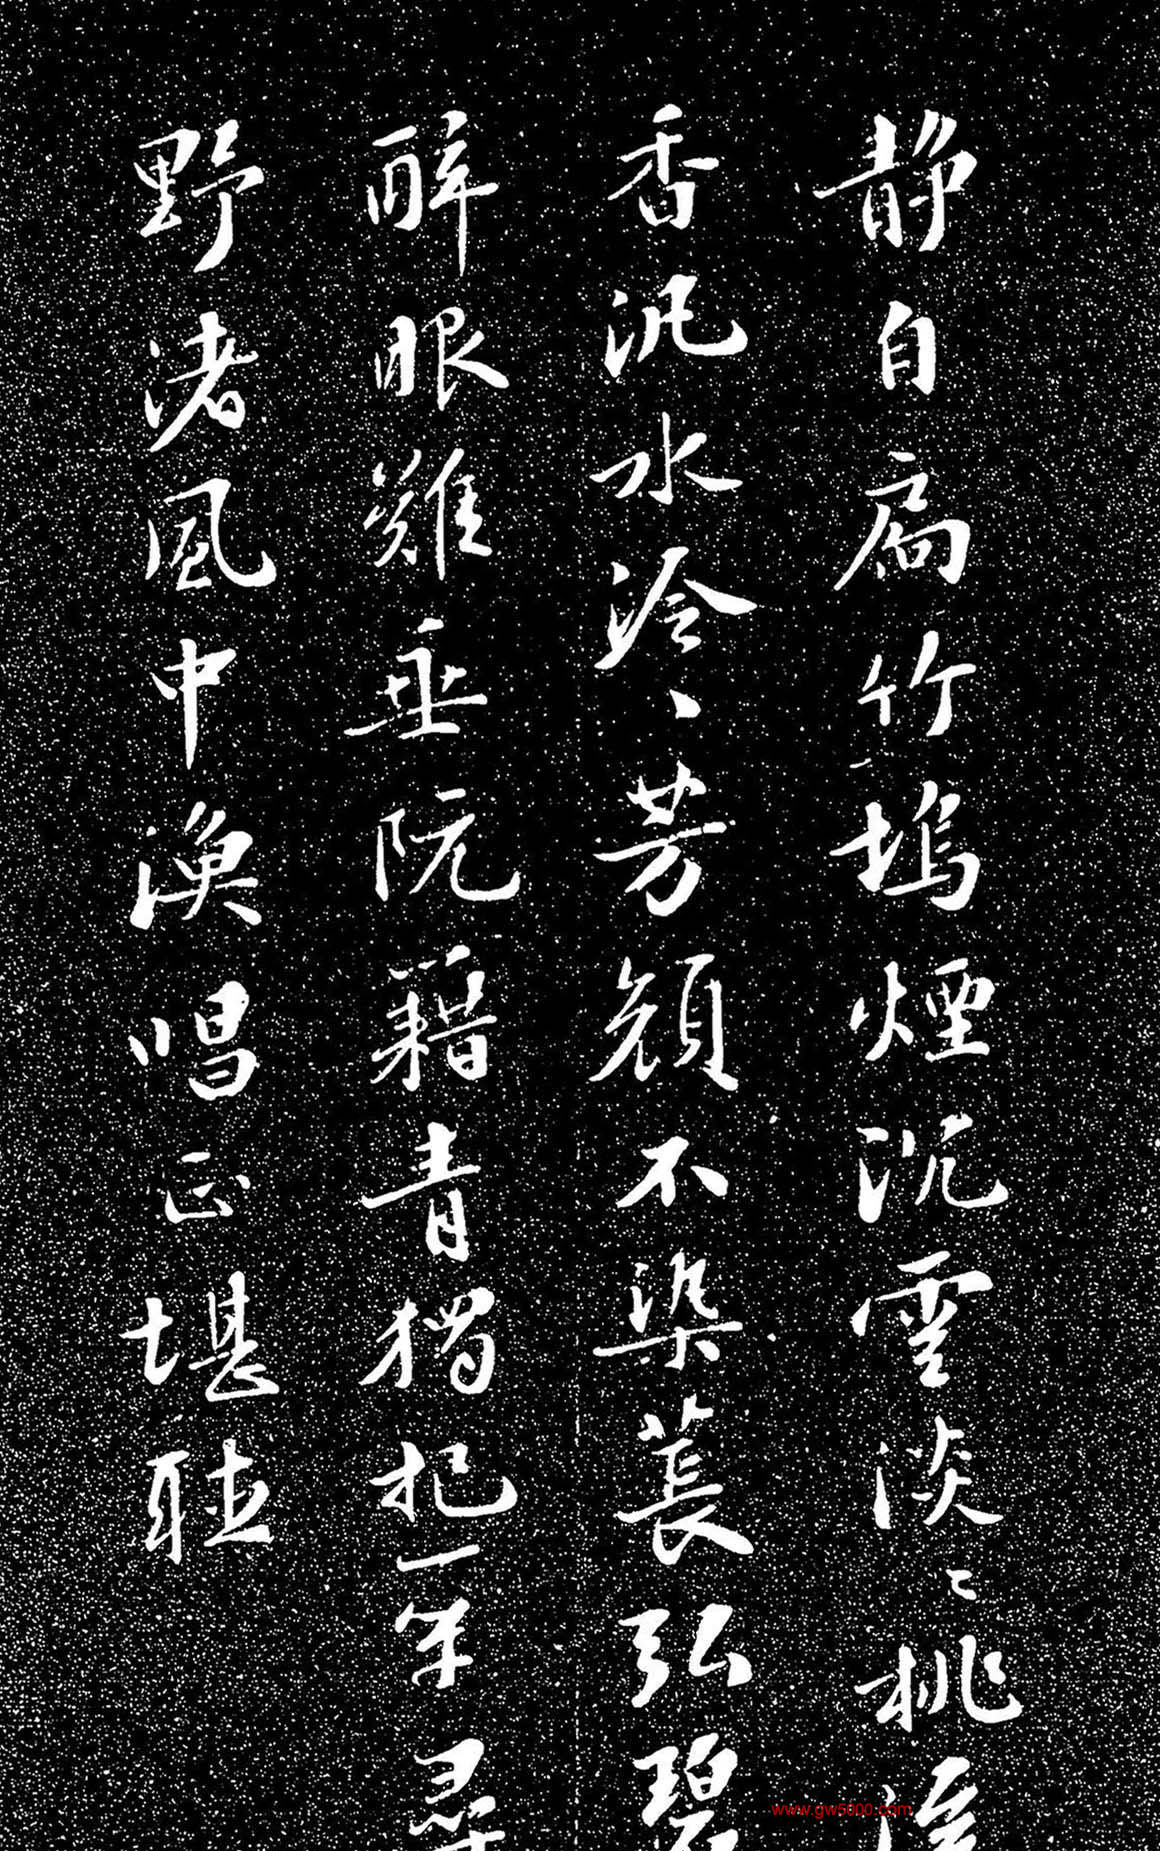 静自扃竹塢煙沉雲淡淡桃
香汎水泠泠芳顏不染萇弘碧
醉眼難垂阮籍青獨把一竿尋
野渚風中漁唱正堪聽
www.gw5000.com